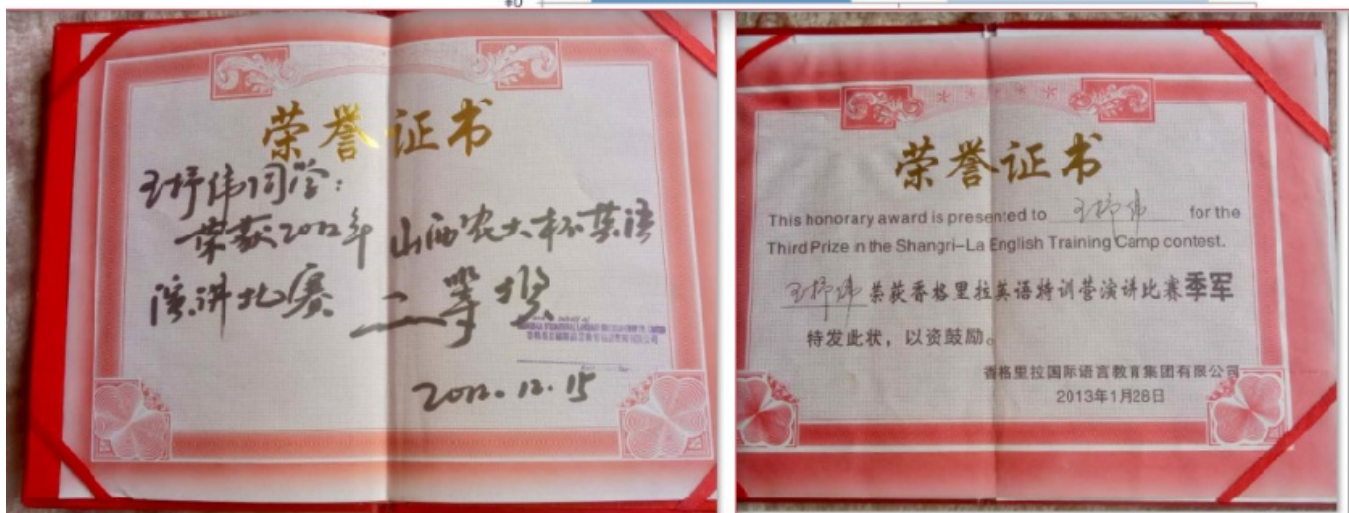 ¥0
荣誉证书
王抒伟同学：
荣获2012年 山西农大杯英语
演讲比赛 二等奖
香格里拉国际语言教育集团有限公司
2012.12.15
荣誉证书
This honorary award is presented to 王抒伟 for the
Third Prize in the Shangri-La English Training Camp contest.
王抒伟 荣获香格里拉英语特训营演讲比赛季军
特发此状，以资鼓励。
香格里拉国际语言教育集团有限公司
2013年1月28日